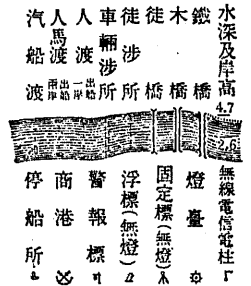 水深及岸高
4.7
2.6
鐵橋
木橋
徒橋
徒涉所
車輛涉所
人渡 出船一岸
人馬渡 出船兩岸
汽船渡
無線電信電柱
燈臺
固定標(無燈)
浮標(無燈)
警報標
商港
停船所